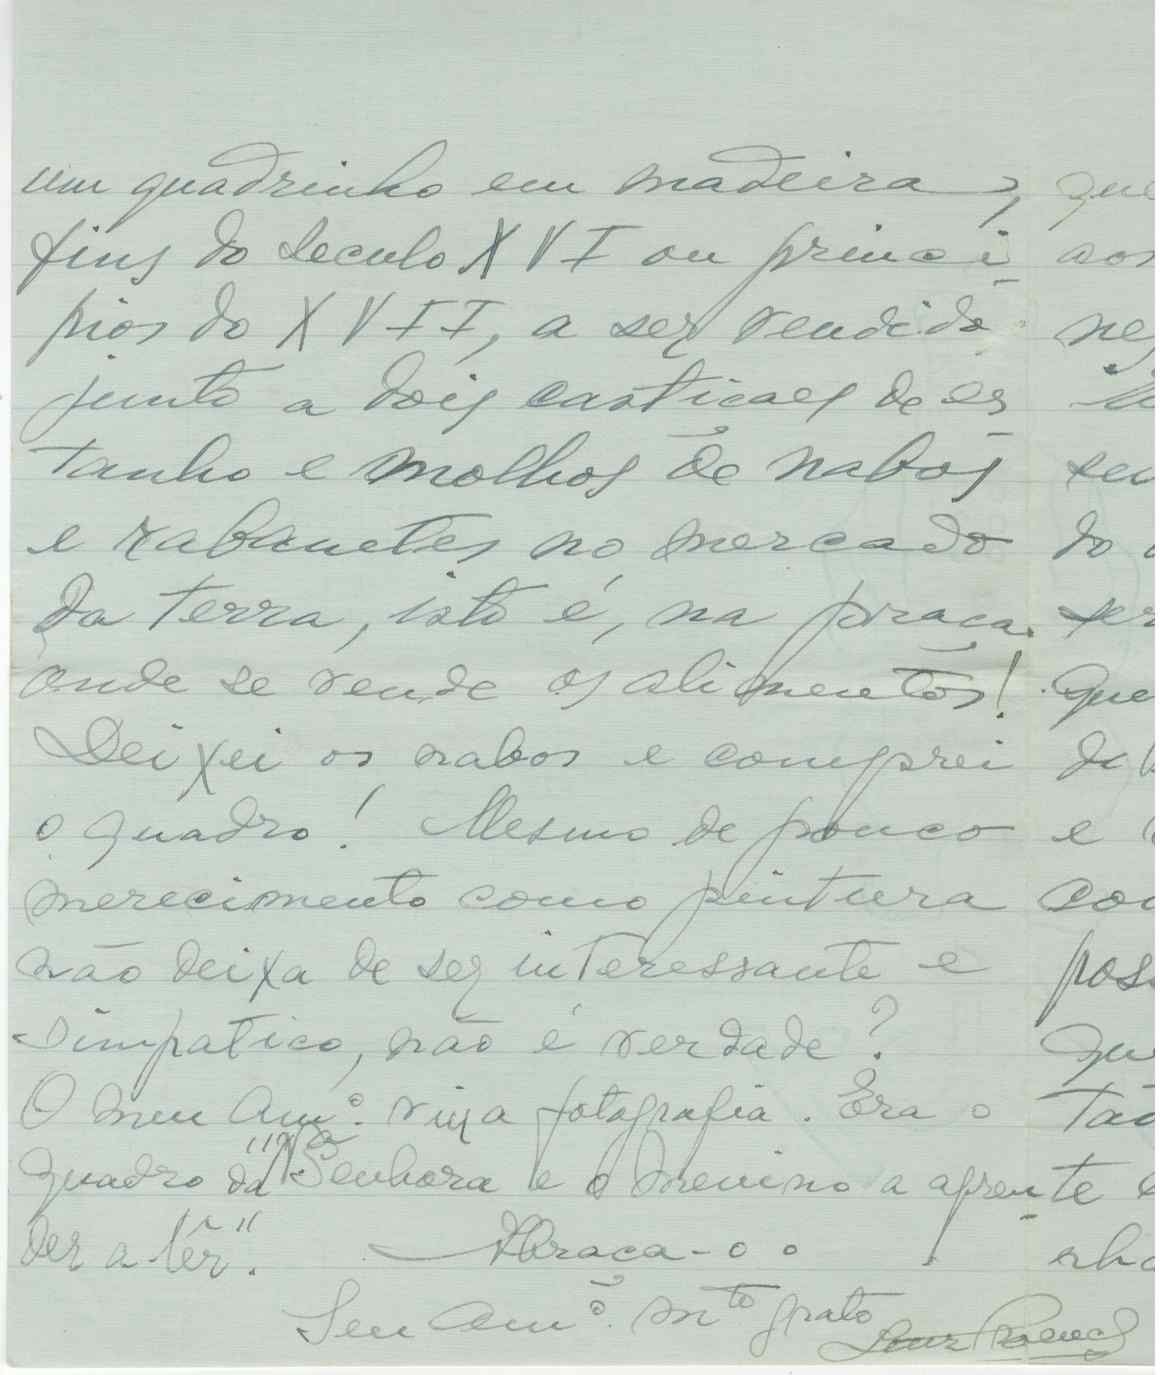 um quadrinho em madeira, que
fins do seculo XVI ou princi
pios do XVII, a ser vendido
junto a dois castiçaes de es
tanho e molhos de nabos
e rabanetes no mercado do
da terra, isto é, na praça
onde se vende os alimentos! que
Deixei os nabos e comprei
o quadro! Mesmo de pouco e
merecimento como pintura
não deixa de ser interessante e
simpatico, não é verdade?
O meu Amº. viu a fotografia. Era o
quadro da "Nª Senhora e o menino a apren
der a lêr".
Abraça-o o
Seu Amº. mto grato